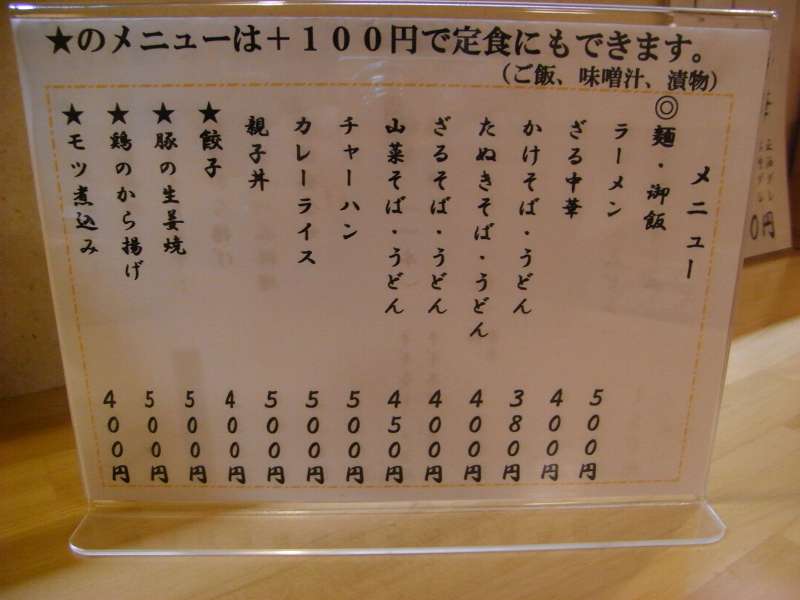 ★のメニューは＋１００円で定食にもできます。
（ご飯、味噌汁、漬物）
メニュー
◎麺・御飯
ラーメン　５００円
ざる中華　４００円
かけそば・うどん　３８０円
たぬきそば・うどん　４００円
ざるそば・うどん　４００円
山菜そば・うどん　４５０円
チャーハン　５００円
カレーライス　５００円
親子丼　５００円
★餃子　４００円
★豚の生姜焼　５００円
★鶏のから揚げ　５００円
★モツ煮込み　４００円
０円